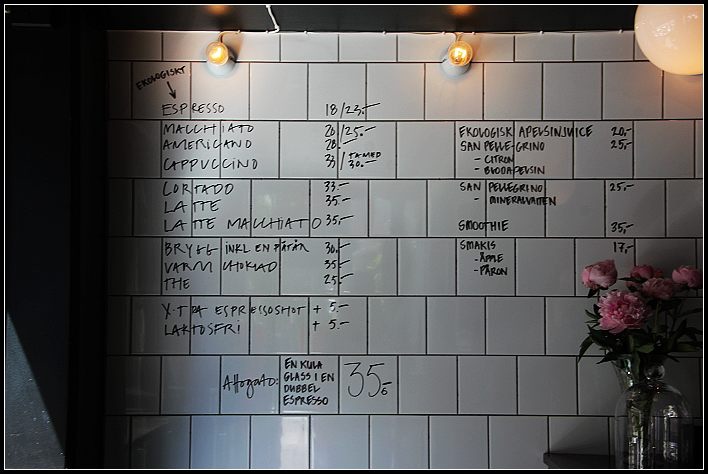 EKOLOGISKT
ESPRESSO 18/23.-
MACCHIATO 20/25.-
AMERICANO 28.-
CAPPUCCINO 33/TAMED 30.-
CORTADO 33.-
LATTE 35.-
LATTE MACCHIATO 35.-
BRYGG INKL EN PÅTÅR 30.-
VARM CHOKLAD 35.-
THE 25.-
X-TRA ESPRESSOSHOT + 5.-
LAKTOSFRI + 5.-
Affogato: EN KULA
GLASS I EN
DUBBEL
ESPRESSO
35.-
EKOLOGISK APELSINJUICE 20.-
SAN PELLEGRINO 25.-
- CITRON
- BLODAPELSIN
SAN PELLEGRINO 25.-
- MINERALVATTEN
SMOOTHIE 35.-
SMAKIS 17.-
- ÄPPLE
- PÄRON